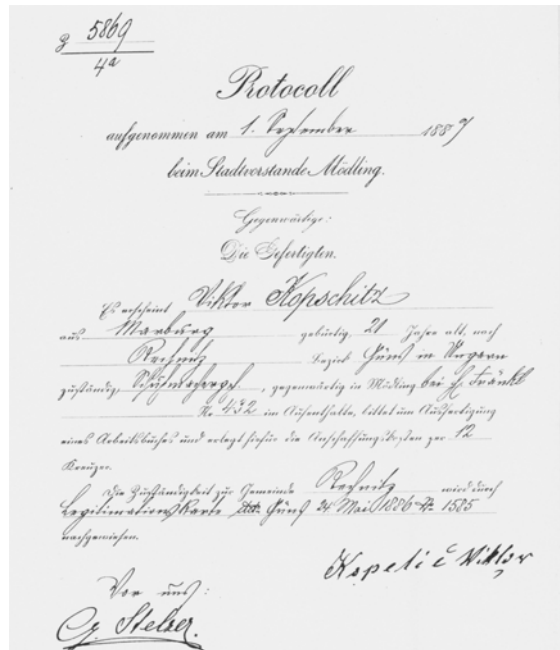 z 5869
4a
Protocoll
aufgenommen am 1. September 1887
beim Stadtvorstande Mödling.
Gegenwärtige:
Die Gefertigten.
Es erscheint Viktor Kopschitz
aus Marburg gebürtig, 20 Jahre alt, nach
Rechnitz Bezirk Güns in Ungarn
zuständig, Schuhmachergeh., gegenwärtig in Mödling bei H. Fränkl
No 432 im Aufenthalte, bittet um Ausfertigung
eines Arbeitsbuches und erlegt hiefür die Anschaffungskosten per 12
Kreuzer.
Die Zuständigkeit zur Gemeinde Rechnitz wird durch
Legitimationskarte Güns 24 Mai 1886 1585
nachgewiesen.
Kopetić Viktor
Vor uns:
G. Stelzer.